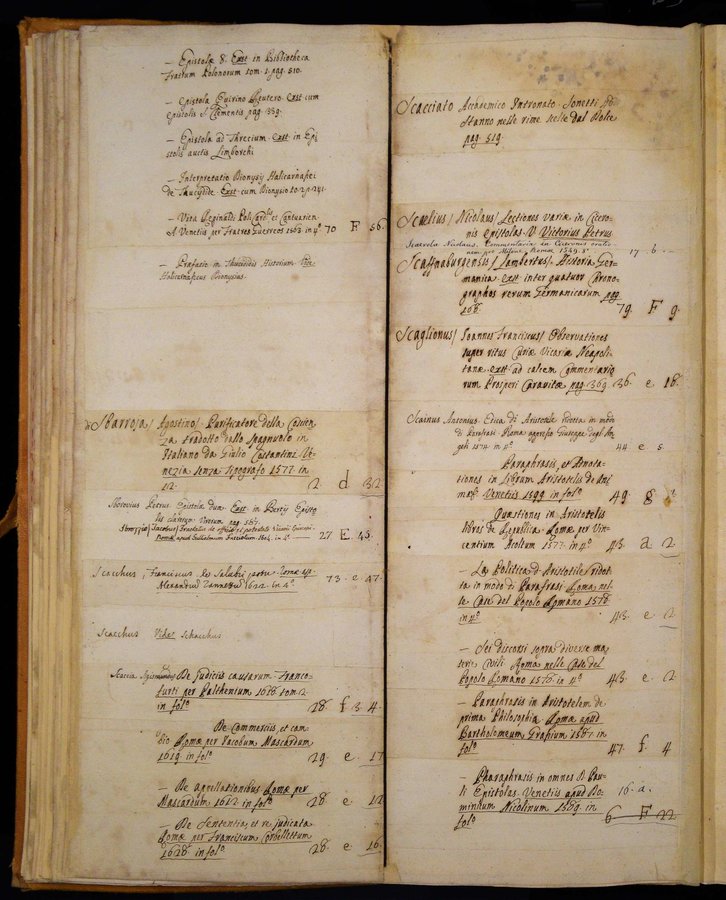 — Epistolæ 8. Exst in Bibliotheca
Fratrum Polonorum tom. 1. pag. 510.
— Epistola Quirino Reutero. Exst cum
epistolis S. Clementis pag. 339.
— Epistola ad Threcium. exst in Epi
stolis auctis Limborchi
— Interpretatio Dionysij Halicarnasei
de Thucydide Exst cum Dionysio to. 2. p. 241.
— Vita Reginaldi Poli Card. et Cantuarien.
Venetiis per Fratres Guerreos 1563. in 4º 70 F 56
— Præfatio in Thucididis Historiam
Halicarnaseus Dionysius.
di Sbarroja / Agostino / Purificatore della Coscien
za tradotto dallo spagnuolo in
Italiano da Giulio Costantini Ve-
nezia senza Tipografo 1577. in
12. 2 d 32
Sborovius Petrus. Epistola duæ. Exst in Partij Episto
lis clarorum Virorum pag. 587.
Sbrozzio / Jacobus / Tractatus de officio et potestate Vicarij Episcopi.
Romæ apud Guilielmum Facciotum 1604. in 4º 27 E. 45.
Scacchus, Franciscus de Salubri potu. Romæ ap.
Alexandrum Zannettum 1622. in 4º 73. e. 47.
Scacchus Vide Schacchus
Scaccia Sigismundus De judiciis causarum. Franco-
furti per Palthenium 1618 tom. 2.
in folº 28 f 3. 4.
De Commerciis, et cam
bio Romæ per Jacobum Mascardum
1619. in folº 29 e. 17
— De appellationibus Romæ per
Mascardum 1612. in folº 28 e 12
— De Sententia, et re judicata
Romæ per Franciscum Corbellettum
1628. in folº 28. e 16.
Scacciato Accademico Intronato. Sonetti 
stanno nelle rime scelte dal Dolce
pag. 519.
Scælius / Nicolaus / Lectiones variæ in Cicero-
nis epistolas. V. Victorius Petrus.
Scævola Nicolaus, Commentaria in Ciceronis oratio-
nem pro Milone Romæ 1549. 8º 17. b.
Scaffnaburgensis / Lambertus / Historia Ger-
manica exst inter quatuor Chrono-
graphos rerum Germanicarum pag.
168. 79. F 9.
Scaglionus / Joannes Franciscus / Observationes
super ritus Curiæ Vicariæ Neapoli-
tanæ exst ad calcem Commentario
rum Prosperi Caravitæ pag. 369. 36. e 18.
Scainus Antonius Etica di Aristotele ridotta in modo
di Parafrasi. Roma appresso Giuseppe degli An
geli 1574. in 4º 44 e 5.
Paraphrasis, et Annota-
tiones in Librum Aristotelis de Ani
ma Venetiis 1599 in folº 49. g
Quæstiones in Aristotelis
libros de Republica Romæ per Vin-
centium Accoltum 1577. in 4º 43. a 2.
— La Politica d'Aristotile ridot
ta in modo di Parafrasi Roma nel-
le Case del Popolo Romano 1578.
in 4º 43. e 2.
— Sei discorsi sopra diverse ma
terie Civili Roma nelle Case del
Popolo Romano 1578. in 4º 43. e 2.
— Paraphrasis in Aristotelem de
prima Philosophia. Romæ apud
Bartholomeum Grassium 1587. in
folº 47. f. 4
— Pharaphrasis in omnes D. Pau-
li Epistolas. Venetiis apud Do- 16. a.
minicum Nicolinum 1589. in
folº 6 F 22